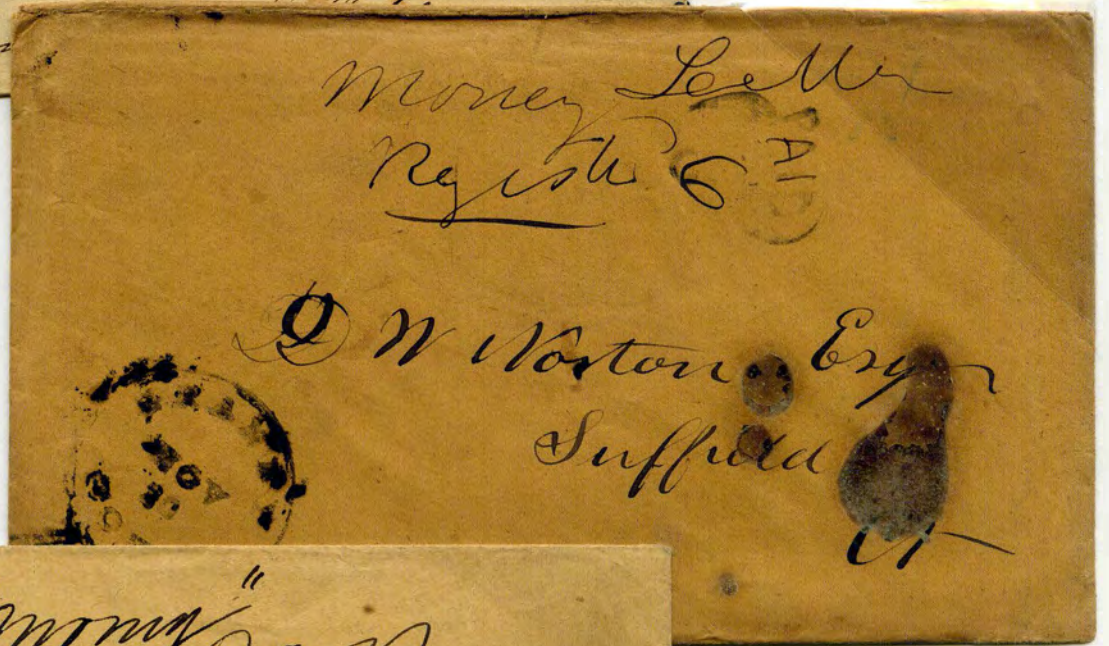 Money Letter
Registr 6
PAID
D W Norton Esq
Suffield
Ct
NOV
"money"